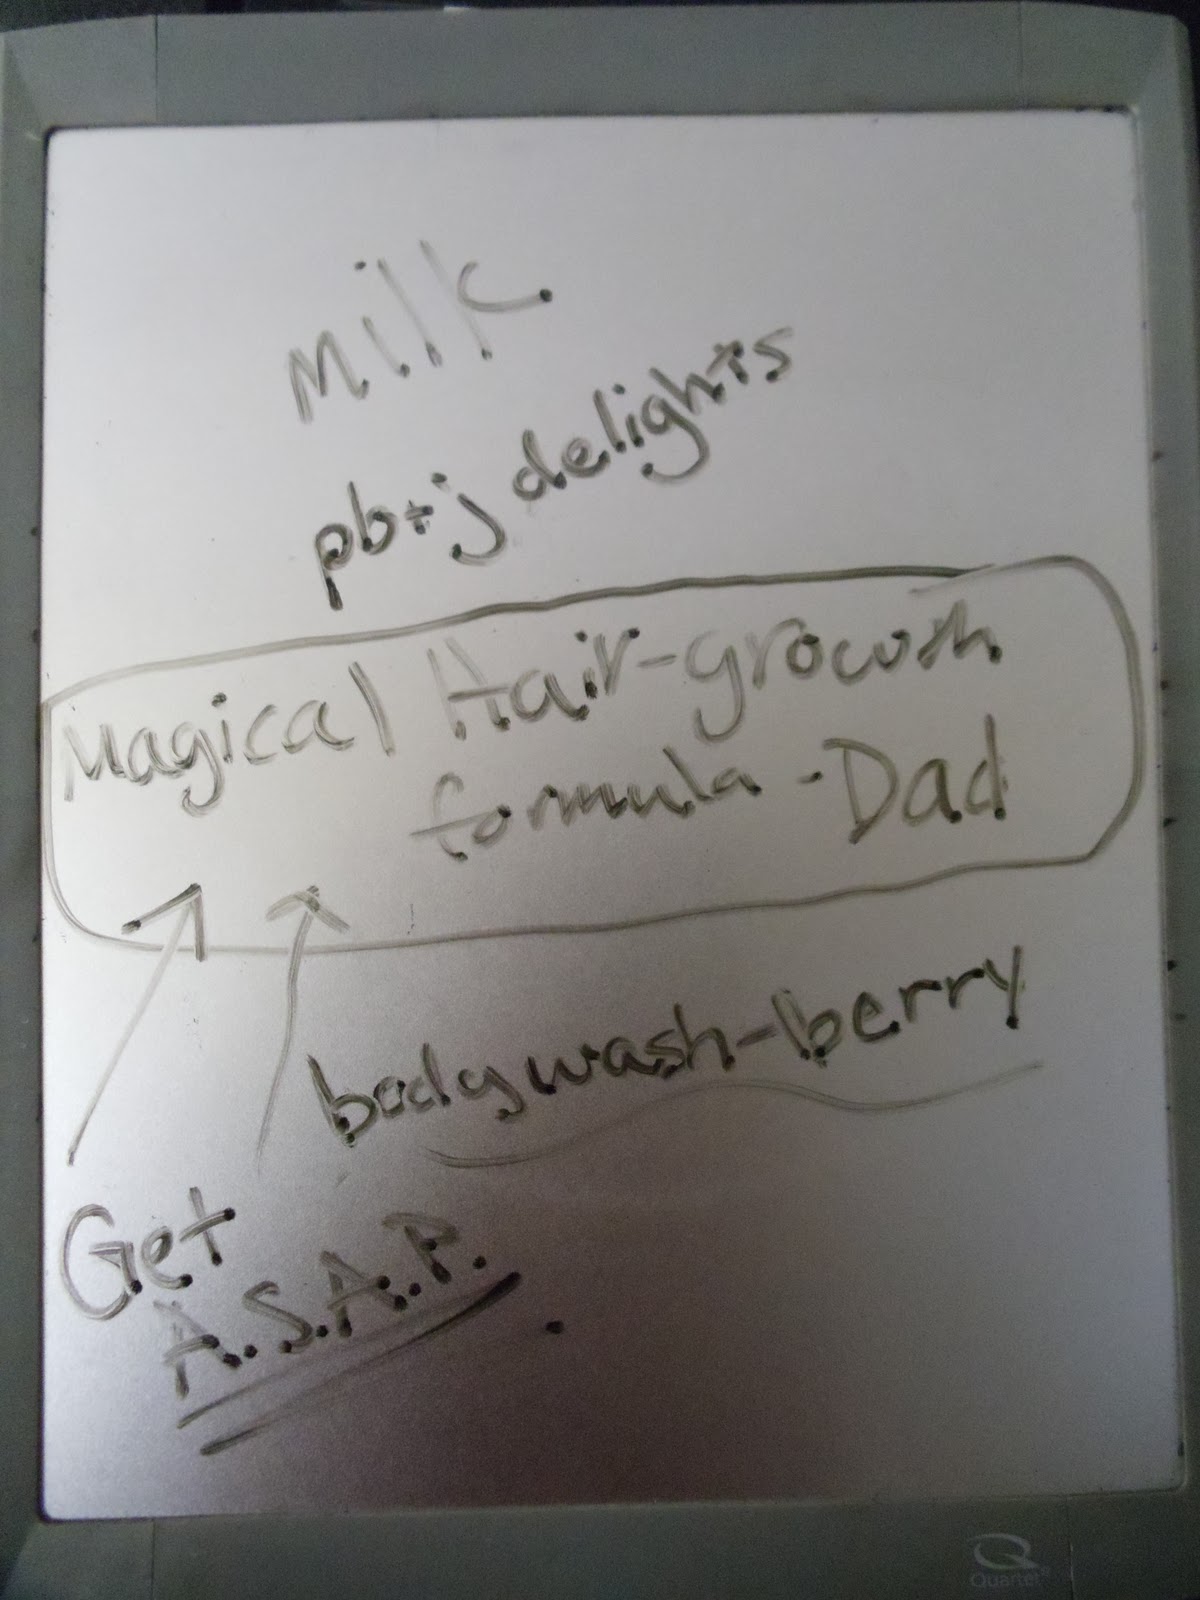 milk
pb+j delights
Magical Hair-growth
formula - Dad
bodywash-berry
Get
A.S.A.P.
Quartet